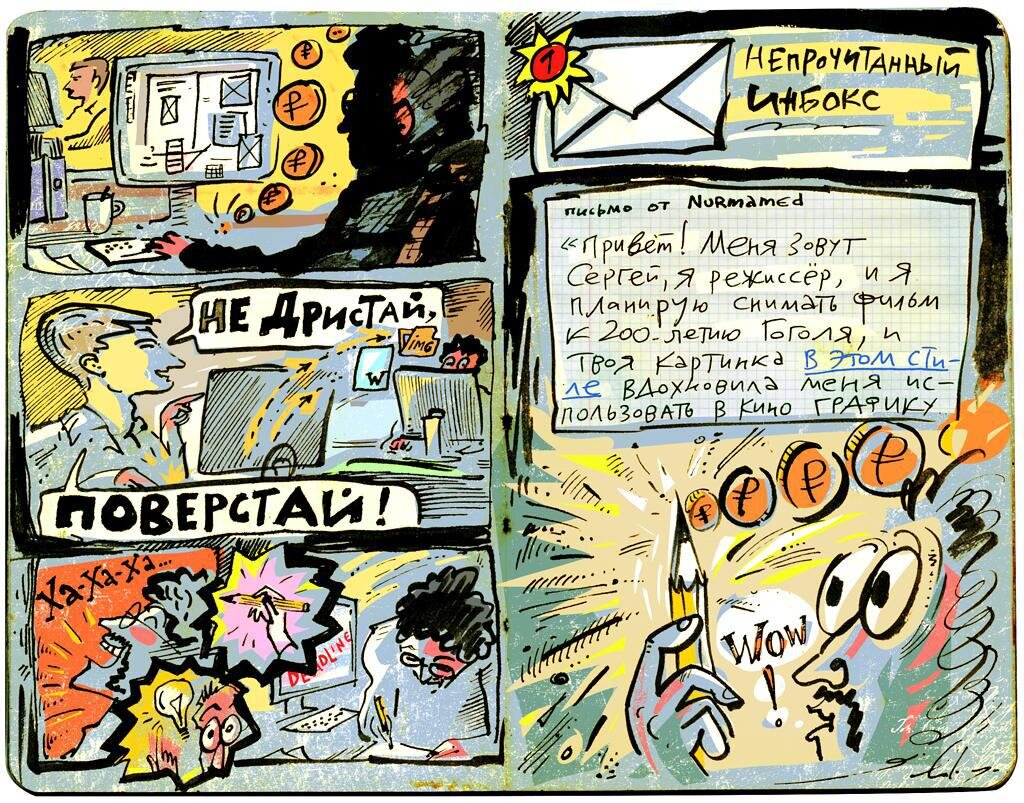 НЕ ДРИСТАЙ,
img
W
ПОВЕРСТАЙ!
Ха-Ха-Ха...
DEADLINE
1
НЕПРОЧИТАННЫЙ
ИНБОКС
письмо от Nurmamed
«Привет! Меня зовут
Сергей, я режиссёр, и я
планирую снимать фильм
к 200-летию Гоголя, и
твоя картинка в этом сти-
ле вдохновила меня ис-
пользовать в кино графику
₽ ₽ ₽ ₽
WOW
!